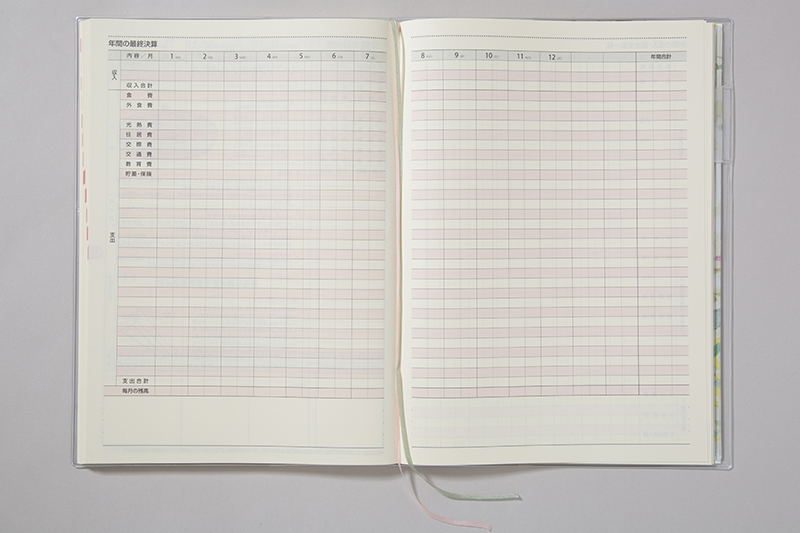 年間の最終決算
内容／月 1 2 3 4 5 6 7 8 9 10 11 12 年間合計
収入
収入合計
食費
外食費
光熱費
住居費
交際費
交通費
教育費
貯蓄・保険
支出
支出合計
毎月の残高